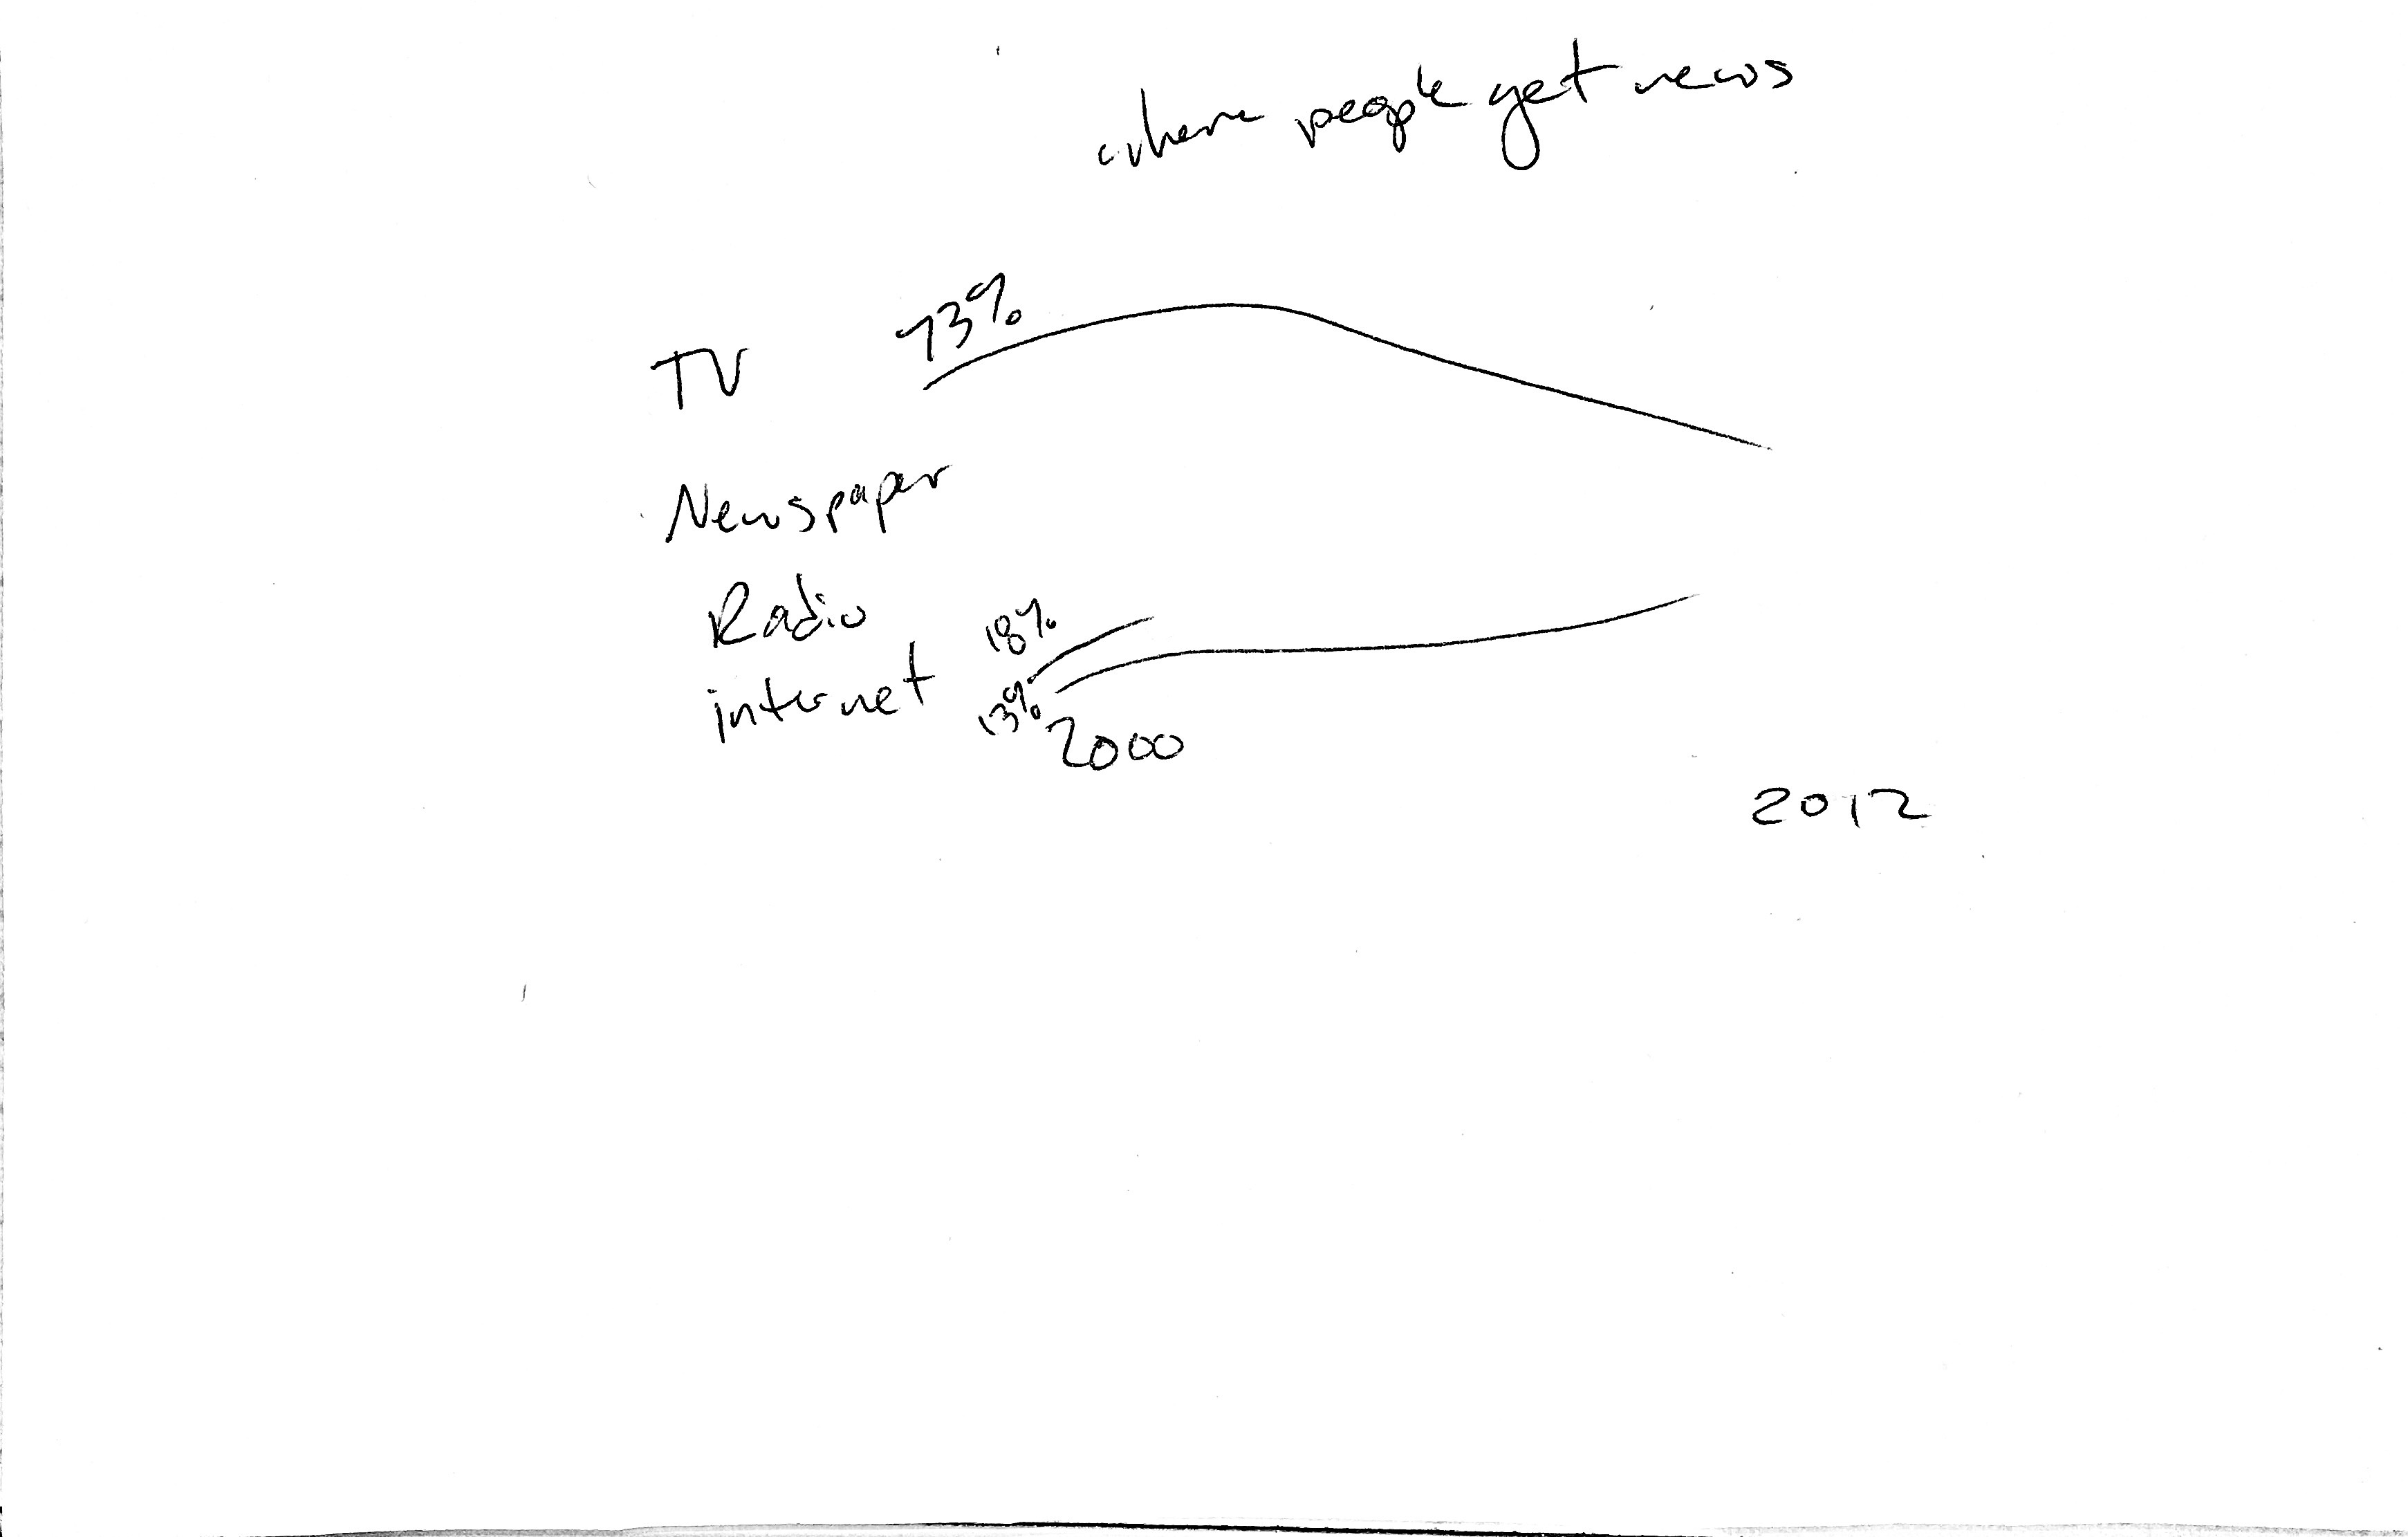 where people get news
73%
TV
Newspaper
Radio
18%
internet
13%
2000
2012